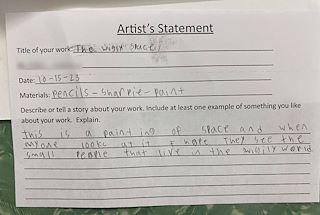 Artist's Statement
Title of your work: The wigily space/
Date: 10-15-23
Materials: pencils - sharpie - paint
Describe or tell a story about your work. Include at least one example of something you like
about your work. Explain.
this is a painting of space and when
anyone looks at it I hope they see the
small people that live in the wigily world